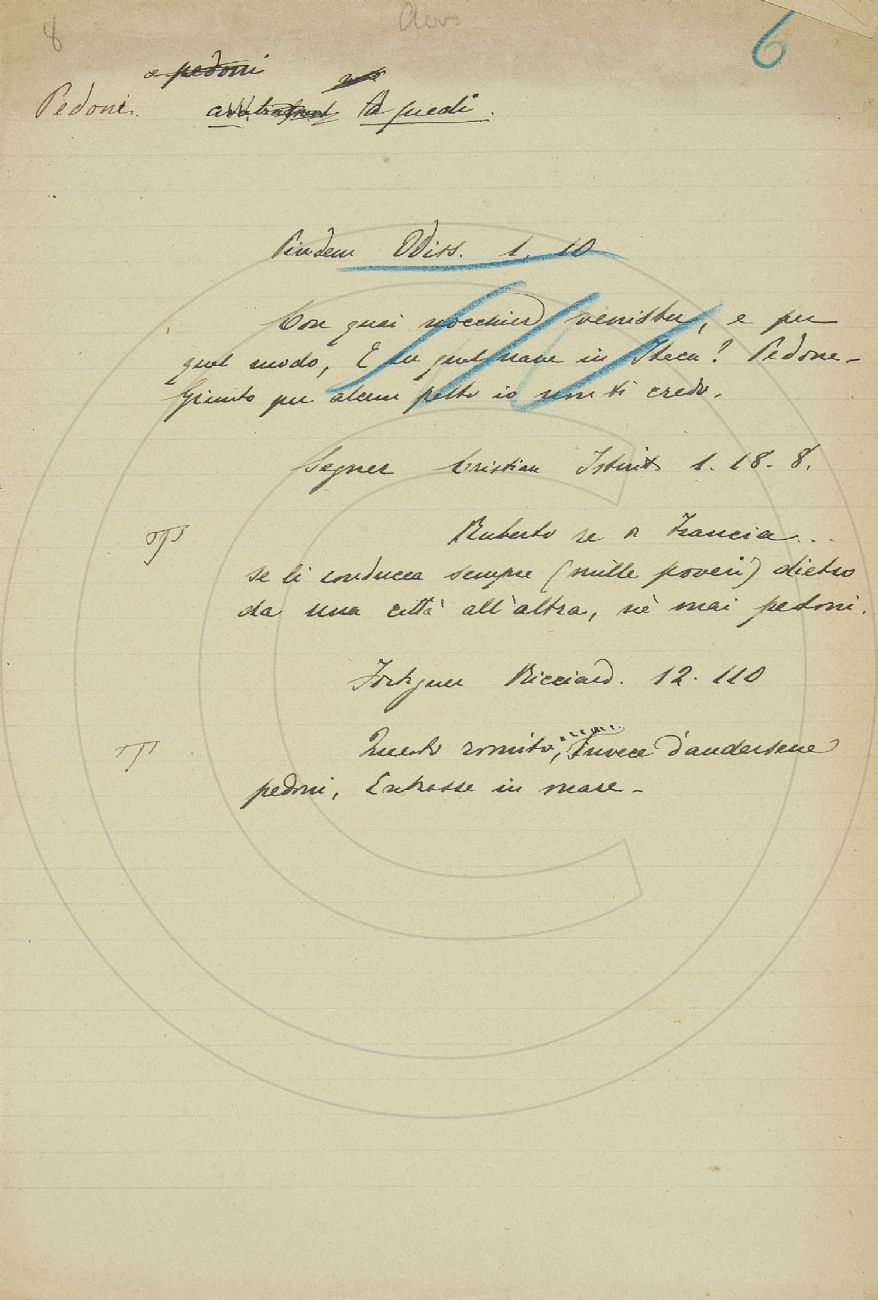 8
6
a pedoni
Pedoni. a piedi.
Pindem Odiss. 1. 10
Con quai nocchier venistu, e per
qual modo, E su qual nave in Itaca? Pedone-
Giunto per alcun patto io non ti credo.
Segner Cristian Istruit 1. 18. 8.
Ruberto re di Francia...
se li conducea sempre (mille poveri) dietro
da una città all'altra, nè mai pedoni.
Fortiguer Ricciard. 12. 110
Questo romito, Invece d'andarsene
pedoni, Entrasse in mare-